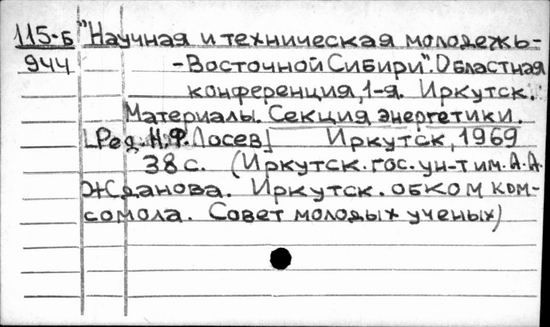 115-Б "Научная и техническая молодежь-
944 -Восточной Сибири". Областная
конференция, 1-я. Иркутск.
Материалы. Секция энергетики.
[Ред. Н.Ф. Лосев] Иркутск, 1969
38 с. (Иркутск. гос. ун-т им. А.А.
Жданова. Иркутск. обком ком-
сомола. Совет молодых ученых)